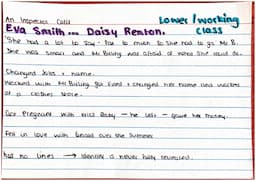 An Inspector Calls
Lower/working class
Eva Smith ... Daisy Renton.
"She had a lot to say - far to much so she had to go" Mr B.
She was small and Mr Birling was afraid of what she could do.
Changed Jobs + name.
Worked with Mr Birling got fired + changed her name and worked
at a clothes store.
Got pregnant with Eric's Baby - he left - gave her money.
Fell in love with Gerald over the summer
Had no lines → identity is never fully revealed.